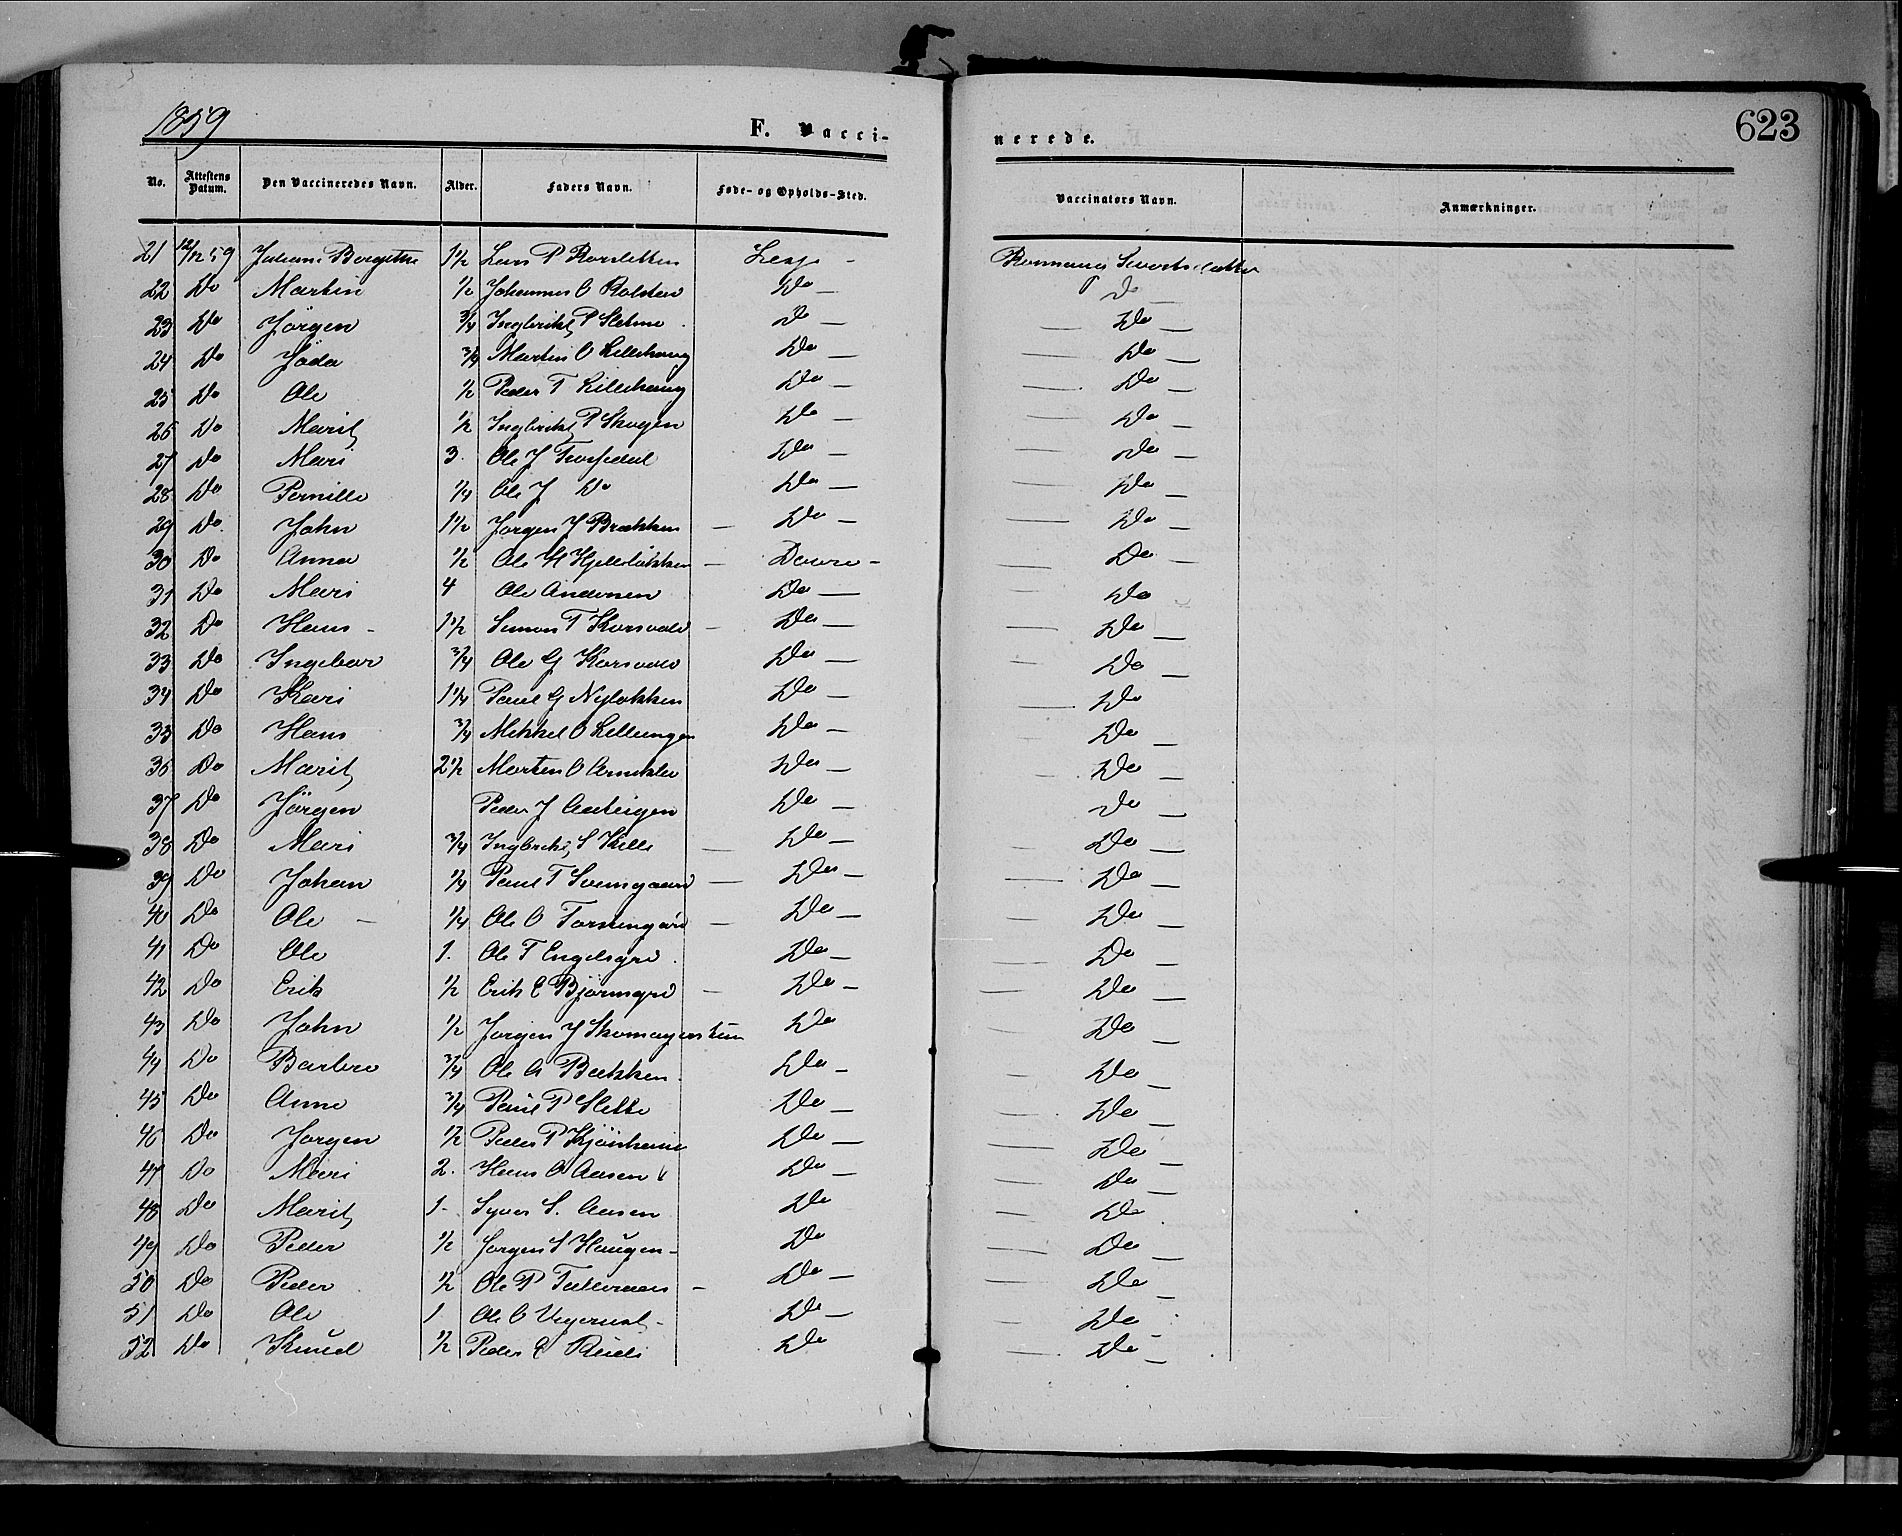 1859
F. Vacci-
nerede.
623
No. Attestens Datum. Den Vaccineredes Navn. Alder. Faders Navn. Føde- og Opholds-Sted. Vaccinators Navn. Anmærkninger.
21 12/12 59 1½ Lars P Lesje -
22 Do Martin ½ Johannes O Do — Do —
23 Do Jörgen ¾ Ingbrikt P Sletme Do — — Do —
24 Do ¾ Martin O Lillehaug Do — — Do —
25 Do Ole ½ Peder T Lillehaug Do — — Do —
26 Do Marit ½ Ingbrikt P Skogen Do — — Do —
27 Do Mari 3. Ole J Do — — Do —
28 Do Pernille ¼ Ole J Do Do — — Do —
29 Do John 1½ Jörgen J Brækken — Do — — Do —
30 Do Anna ½ Ole — Dovre - — Do —
31 Do Mari 4 Ole Andersen Do — — Do
32 Do Hans - 1½ Simon T Korsvold — Do — — Do —
33 Do Ingebor ¾ Ole G Korsvold Do — — Do
34 Do Kari 1¼ Paul G Nyløkken Do — — Do
35 Do Hans ¾ Mikkel O Do — — Do —
36 Do Marit 2½ Morten O Do — — Do —
37 Do Jörgen Peder J Do — — Do —
38 Do Mari ¾ Ingbrikt S Kille — Do — — Do —
39 Do Johan ¼ Paul T — Do — — Do —
40 Do Ole — ¼ Ole O — Do — — Do —
41 Do Ole 1. Ole T Engelsgrd. Do — — Do —
42 Do Erik ½ Erik E Bjørnsgrd — Do - — Do —
43 Do John ½ Jörgen J Do — Do —
44 Do Barbro ¾ Ole A Bækken. Do - — Do —
45 Do Anne ¾ Paul P Slette Do — — Do —
46 Do Jørgen ½ Peder P Do — — Do —
47 Do Mari 2. Hans O Aasen Do — — Do —
48 Do Marit 1- Syver S. Aasen Do — Do
49 Do Peder ½ Jørgen S Haugen - Do — Do —
50 Do Peder ½ Ole P — Do — — Do —
51 Do Ole 1 Ole O Do — Do
52 Do Knud ½ Peder E Do — Do —